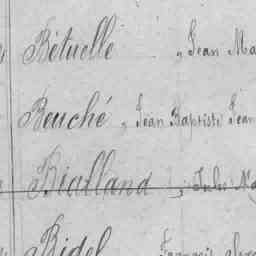 Bétuelle „ Jean Ma
Beuché „ Jean Baptiste Jean
Bialland „ Jules
Bidel François